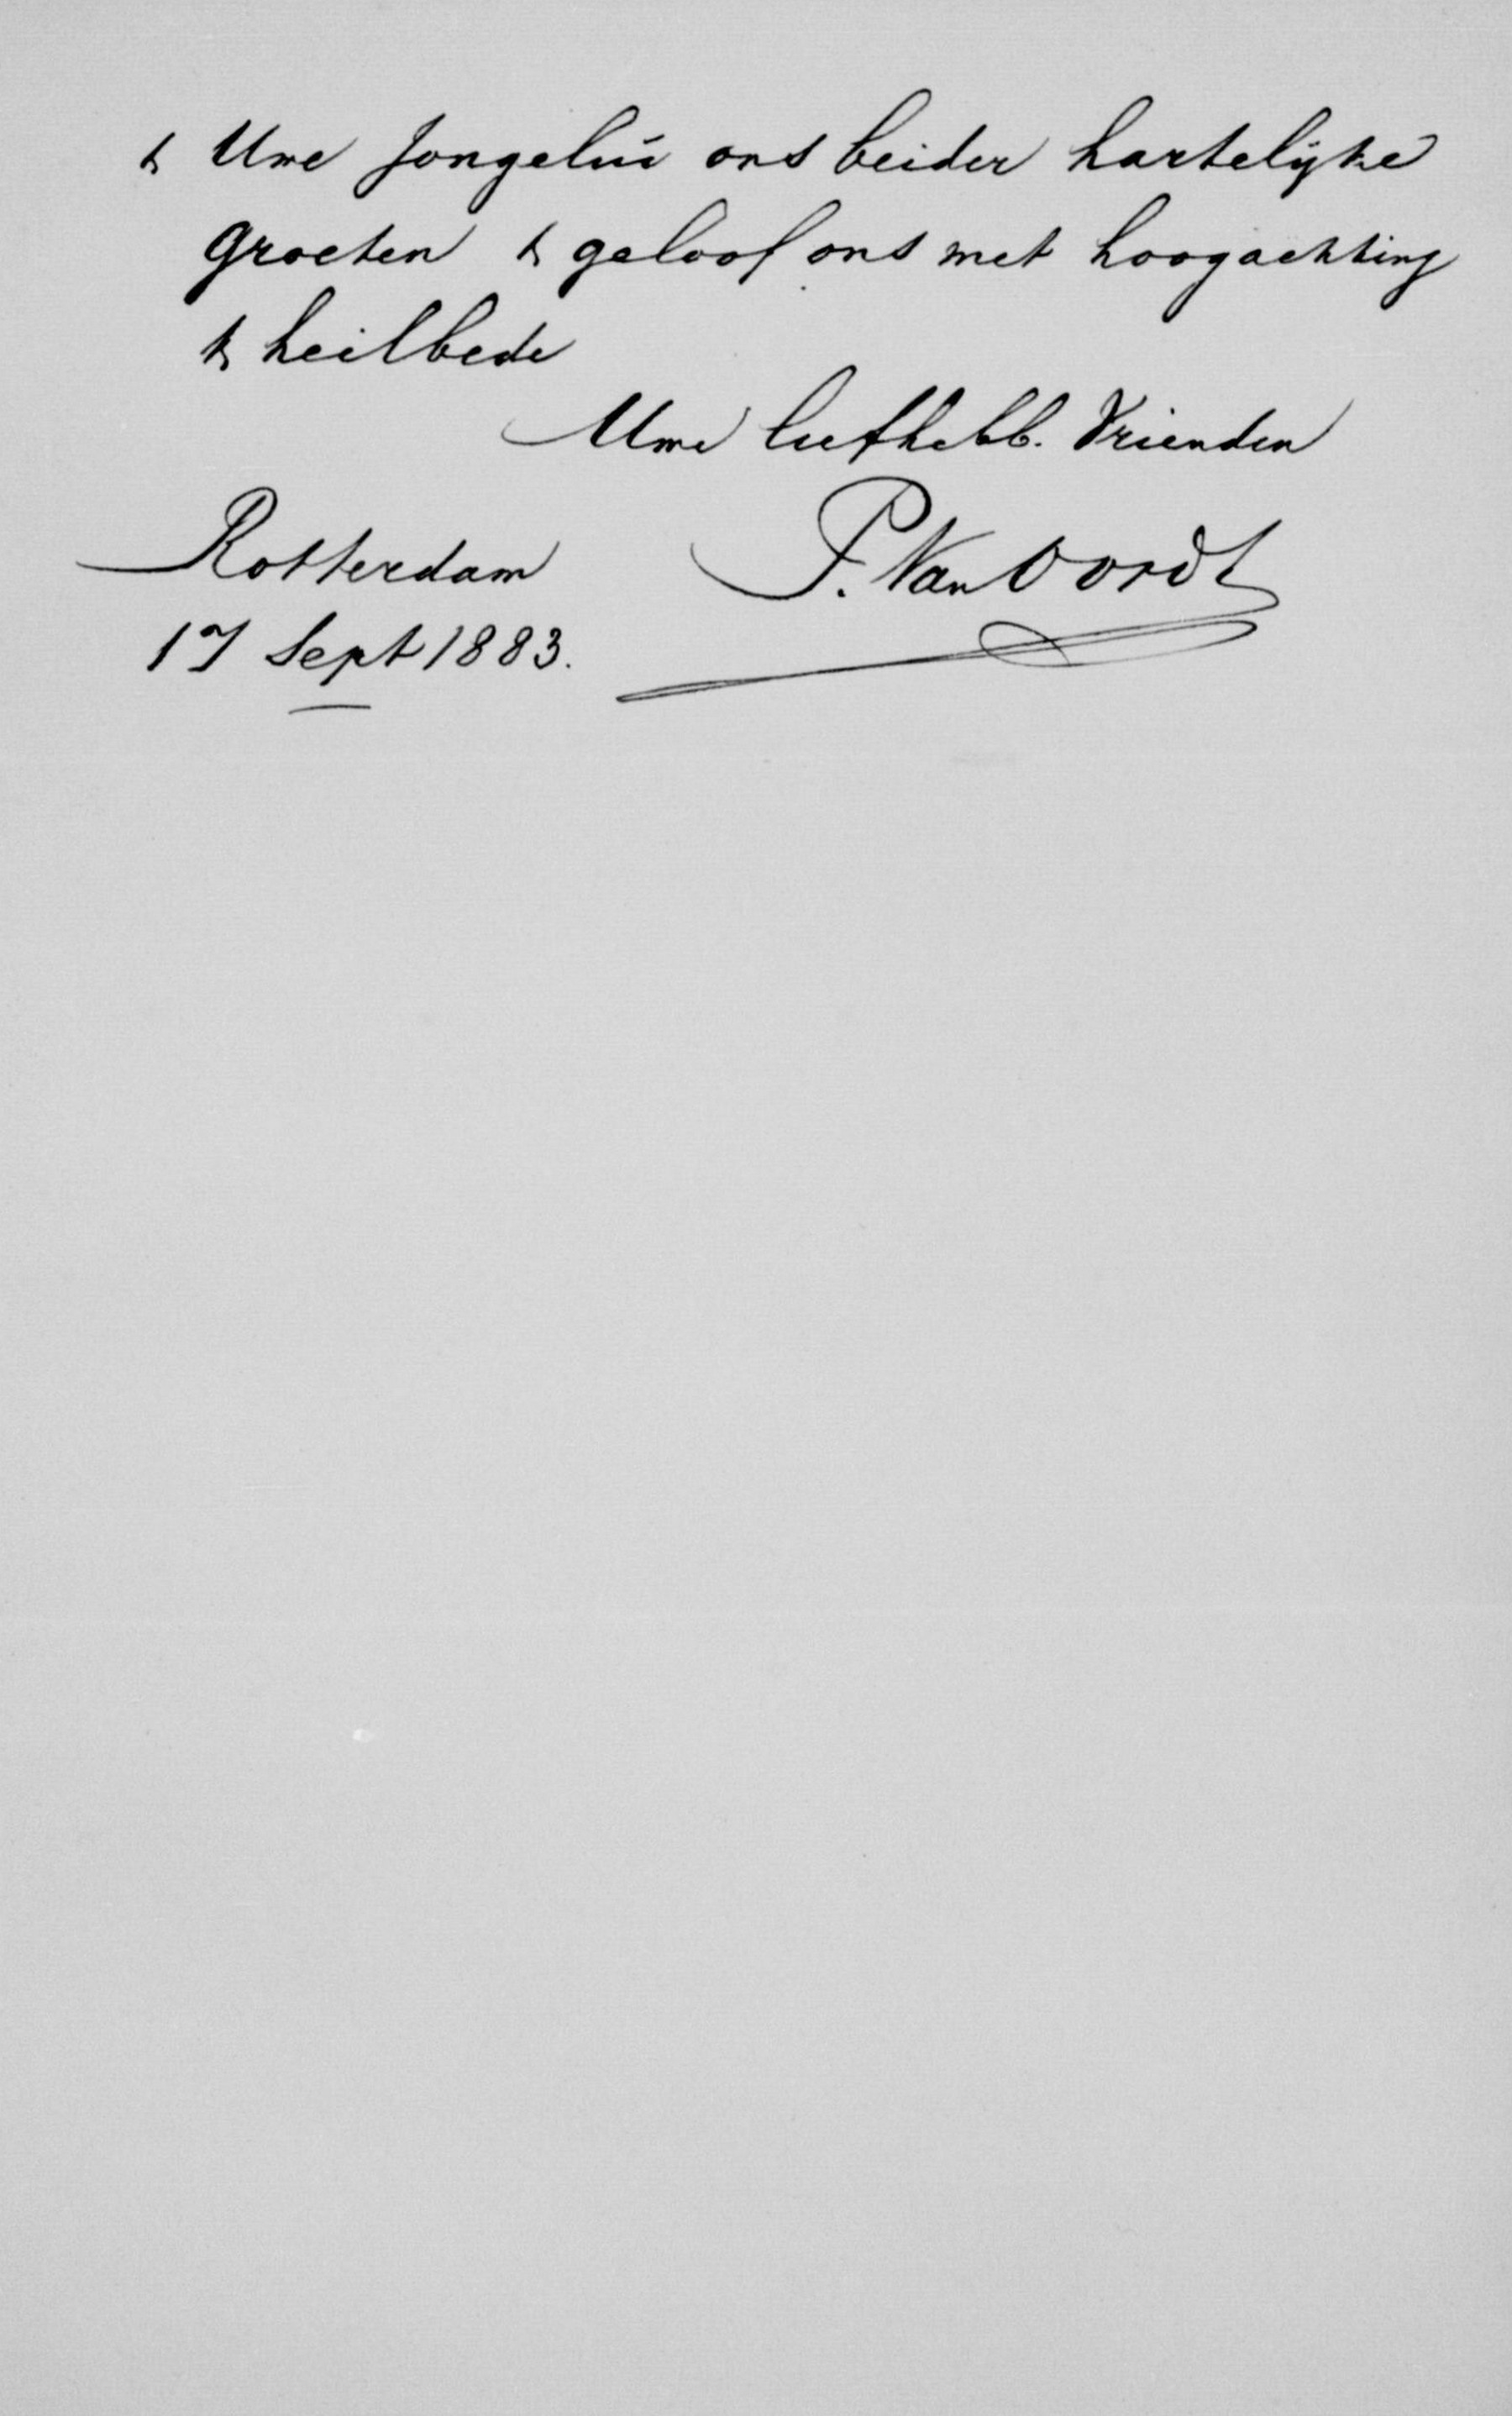 & Uwe Jongelui ons beider hartelijke
Groeten & geloof ons met hoogachting
& heilbede
Uwe liefhebb. Vrienden
P. Van Oordt
Rotterdam
17 Sept 1883.